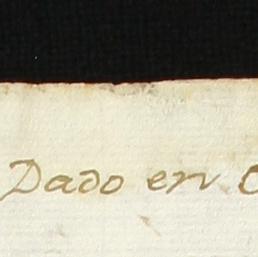 Dado en